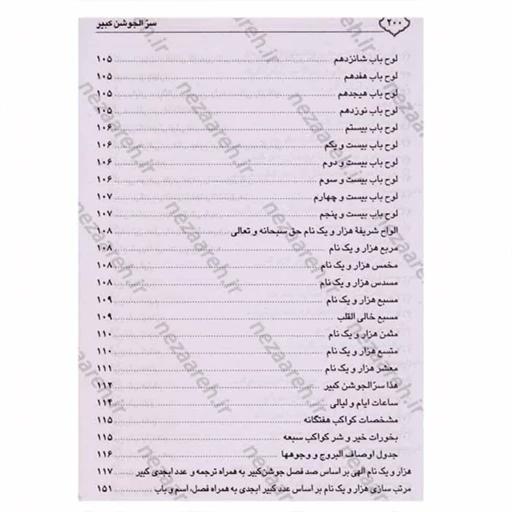 ۲۰۰ سرّ الجوشن کبیر
لوح باب شانزدهم ۱۰۵
لوح باب هفدهم ۱۰۵
لوح باب هیجدهم ۱۰۵
لوح باب نوزدهم ۱۰۵
لوح باب بیستم ۱۰۶
لوح باب بیست و یکم ۱۰۶
لوح باب بیست و دوم ۱۰۶
لوح باب بیست و سوم ۱۰۶
لوح باب بیست و چهارم ۱۰۷
لوح باب بیست و پنجم ۱۰۷
الواح شریفهٔ هزار و یک نام حق سبحانه و تعالی ۱۰۸
مربع هزار و یک نام ۱۰۸
مخمس هزار و یک نام ۱۰۸
مسدس هزار و یک نام ۱۰۸
مسبع هزار و یک نام ۱۰۹
مسبع خالی القلب ۱۰۹
مثمن هزار و یک نام ۱۱۰
متسع هزار و یک نام ۱۱۰
معشر هزار و یک نام ۱۱۱
هذا سرّ الجوشن کبیر ۱۱۲
ساعات ایام و لیالی ۱۱۴
مشخصات کواکب هفتگانه ۱۱۵
بخورات خیر و شر کواکب سبعه ۱۱۵
جدول اوصاف البروج و وجوهها ۱۱۶
هزار و یک نام الهی بر اساس صد فصل جوشن کبیر به همراه ترجمه و عدد ابجدی کبیر ۱۱۷
مرتب سازی هزار و یک نام بر اساس عدد کبیر ابجدی به همراه فصل، اسم و باب ۱۵۱
nezaareh.ir